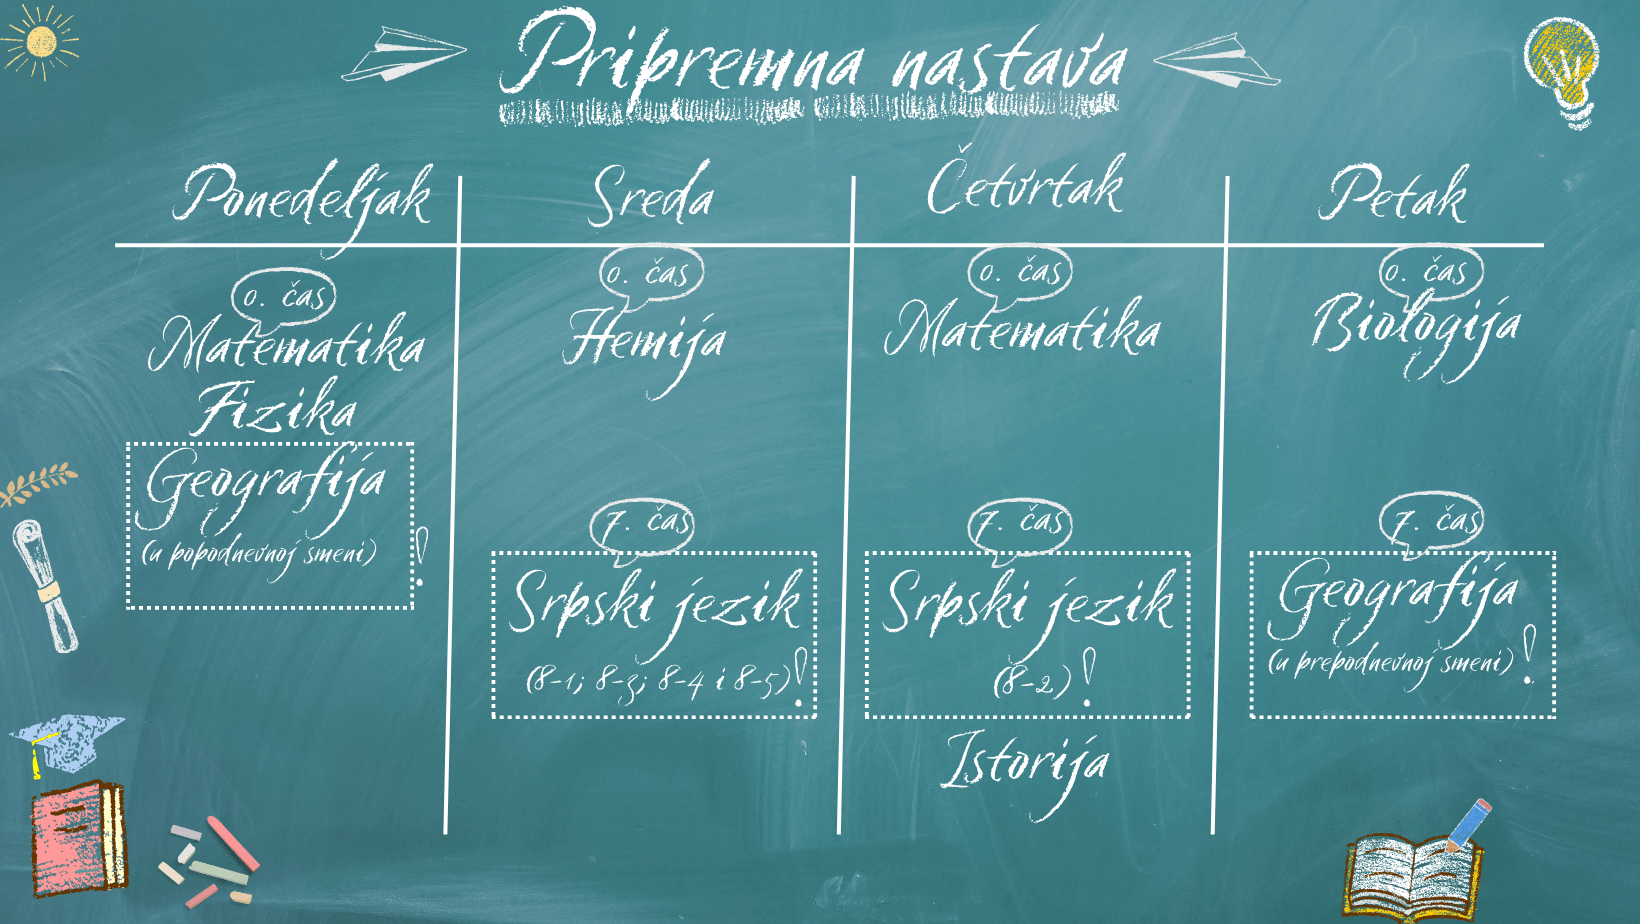 Pripremna nastava
Ponedeljak
0. čas
Matematika
Fizika
Geografija
(u popodnevnoj smeni) !
Sreda
0. čas
Hemija
7. čas
Srpski jezik
(8-1; 8-3; 8-4 i 8-5) !
Četvrtak
0. čas
Matematika
7. čas
Srpski jezik
(8-2) !
Istorija
Petak
0. čas
Biologija
7. čas
Geografija
(u prepodnevnoj smeni) !